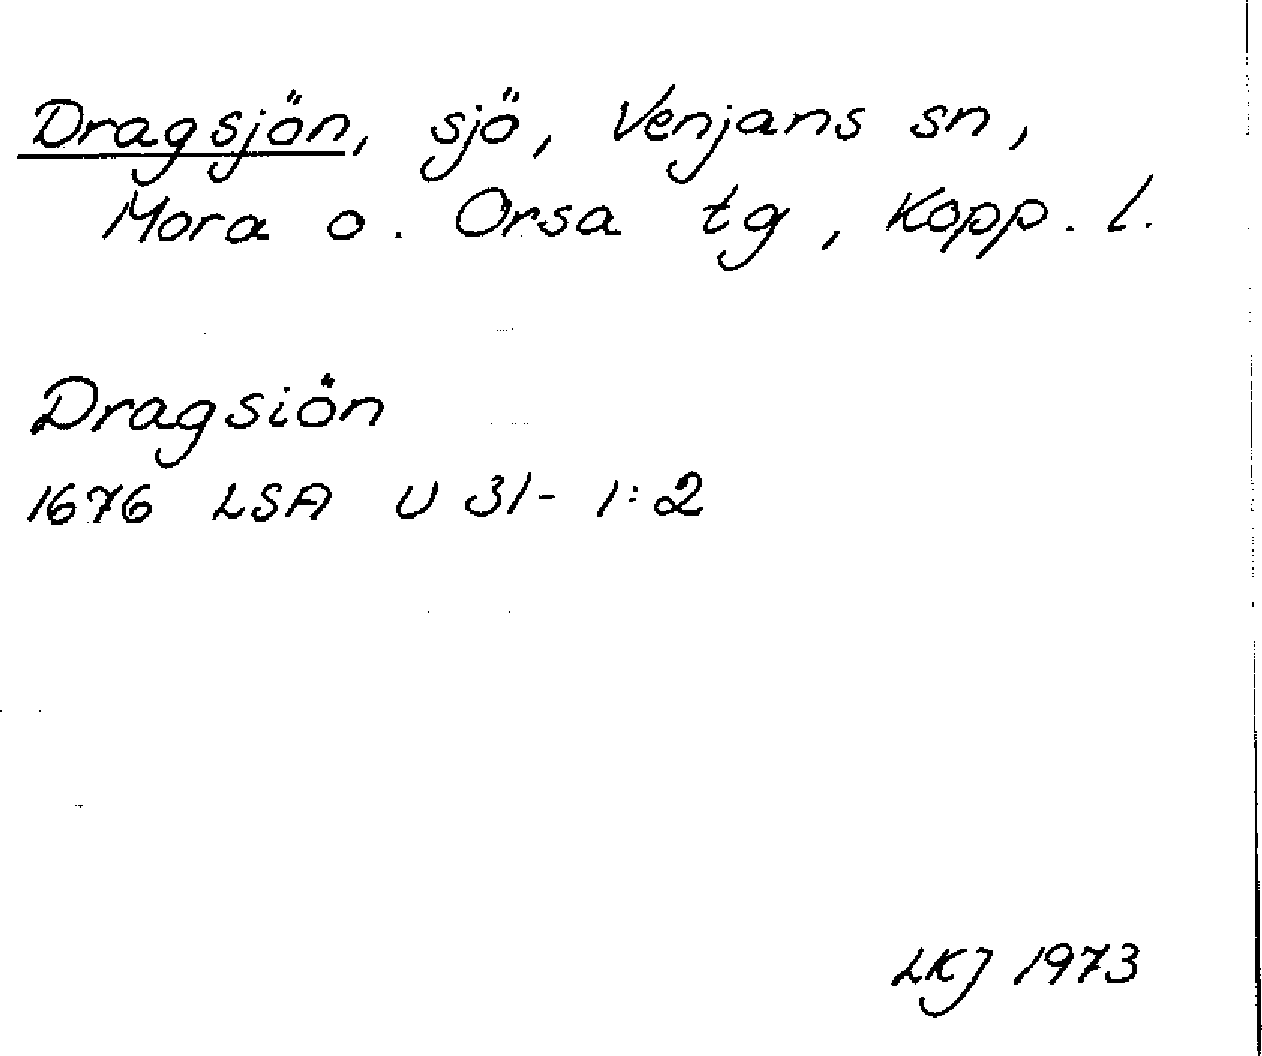 Dragsjön, sjö, Venjans sn,
Mora o. Orsa tg, Kopp. l.
Dragsiön
1676 LSA U 31-1:2
LKJ 1973